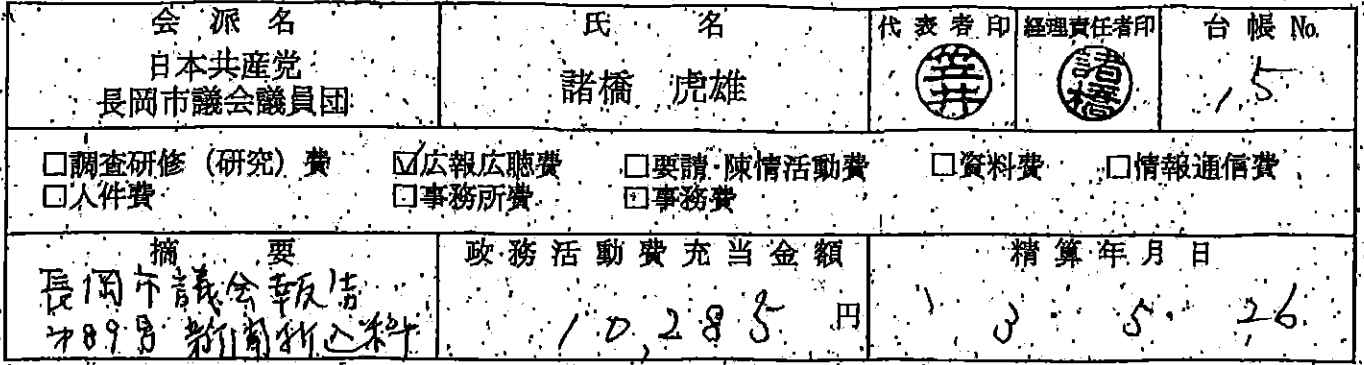 会派名 氏名 代表者印 経理責任者印 台帳No.
日本共産党
長岡市議会議員団
諸橋 虎雄 笠井 諸橋 15
□調査研修(研究)費 ☑広報広聴費 □要請・陳情活動費 □資料費 □情報通信費
□人件費 □事務所費 □事務費
摘要 政務活動費充当金額 精算年月日
長岡市議会報告
オ89号 新聞折込料
10,285円 3 5 26